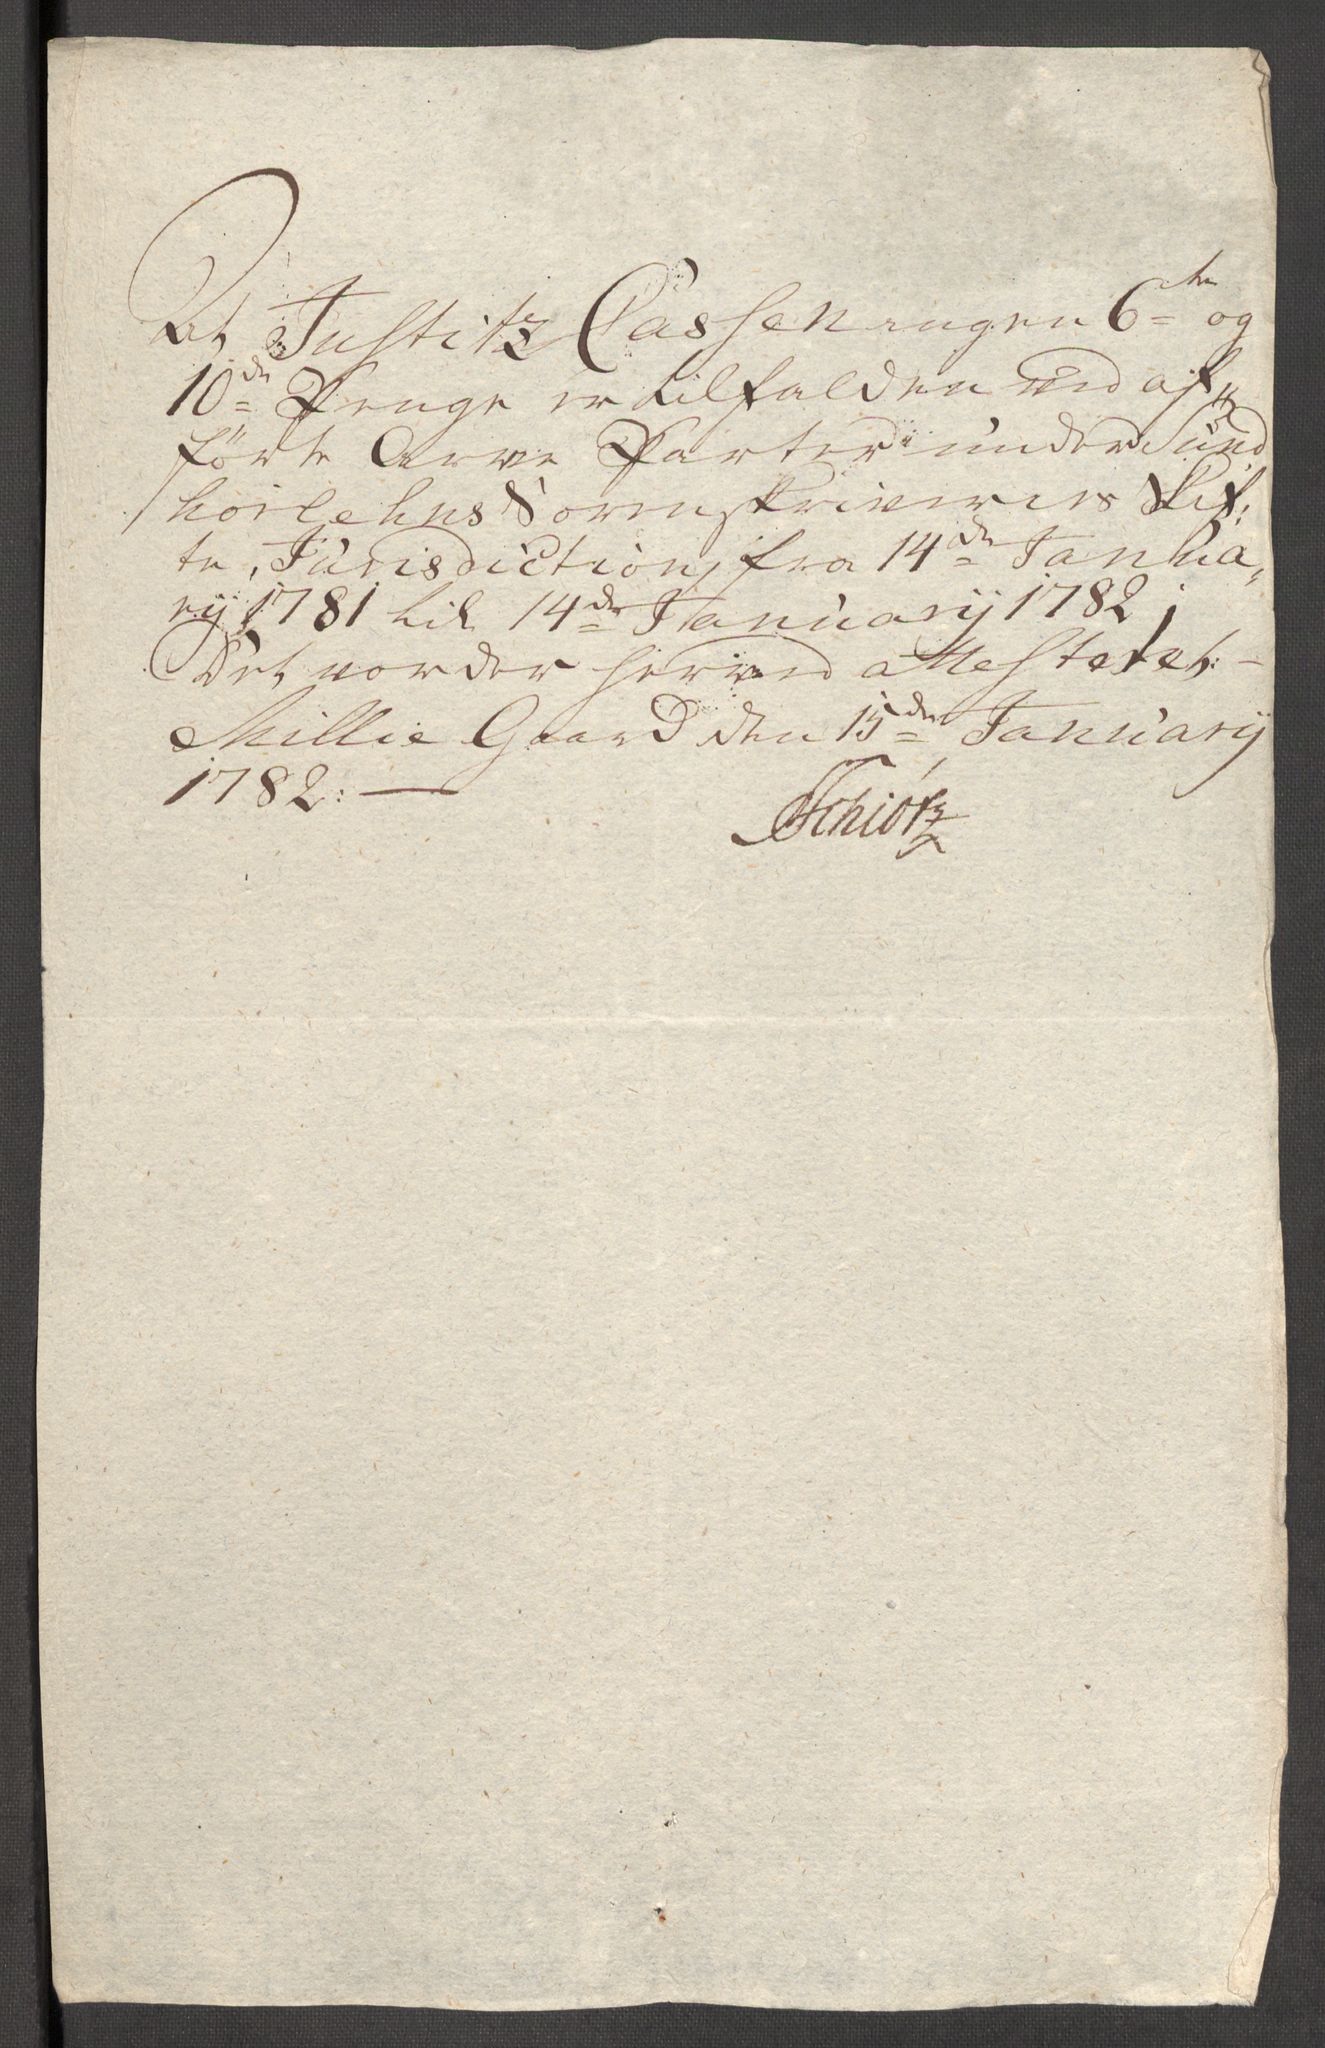 At Justitz Cassen ingen 6te og
10de Penge er tilfalden ved af„
förte Arve Parter under Sund
horlehns Sorenskriveries Skif„
te Jurisdiction, fra 14de Janua„
rij 1781 til 14de Januarij 1782;
Det vorder herved attesteret. –
Millie Gaard den 15de Januarij
1782: —
Schiötz